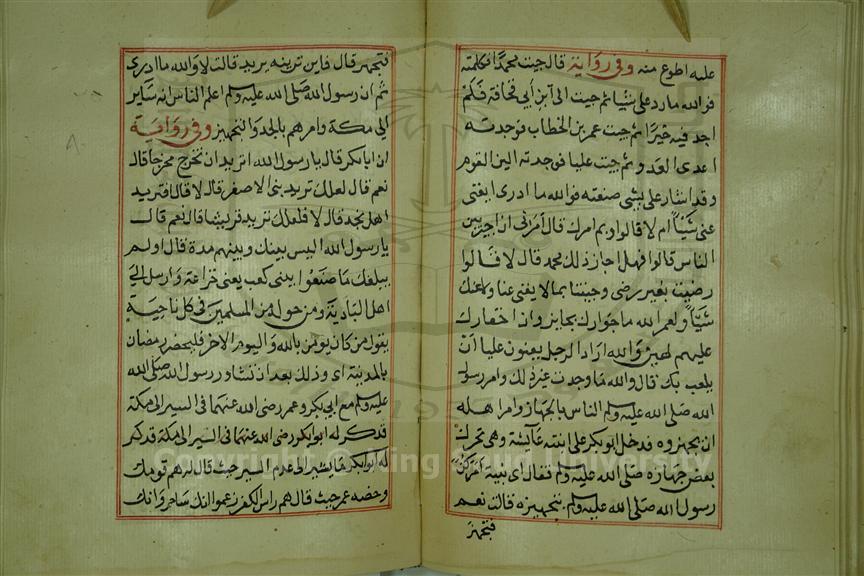 عليه اطوع منه وفي رواية قال جيت محمدا فكلمته
فوالله مارد علي شيا ثم جيت الى ابن أبي قحافة فلم
اجد فيه خيرا ثم جيت عمر بن الخطاب فوجدته
اعدى العدو ثم جيت عليا فوجدته الين القوم
وقد اشار علي بشي صنعته فوالله ما ادرى ايغنى
عني شيأ ام لا قالوا وبم امرك قال أمرني ان اجير بين
الناس قالوا فهل اجاز ذلك محمد قال لا قالوا
رضيت بغير رضى وجيتنا بما لا يغنى عنا ولا عنك
شيأ ولعمر الله ما جوارك بجايز وان اخفارك
عليهم لهين والله اراد الرجل يعنون عليا أن
يلعب بك قال والله ما وجدت غير ذلك وامر رسول
الله صلى الله عليه وسلم الناس بالجهاز وامر اهله
ان يجهزوه فدخل ابو بكر على ابنته عآيشة وهي تحرك
بعض جهازه صلى الله عليه وسلم فقال اي بنية أمركن
رسول الله صلى الله عليه وسلم بتجهيزه قالت نعم
فتجهز
فتجهز قال فاين ترينه يريد قالت لا والله ما ادرى
ثم ان رسول الله صلى الله عليه وسلم اعلم الناس انه ساير
الى مكة وامرهم بالجد والتجهيز وفي رواية
ان ابا بكر قال يا رسول الله اتريد ان تخرج مخرجا قال
نعم قال لعلك تريد بنى الاصفر قال لا قال افتريد
اهل نجد قال لا فلعلك تريد قريشا قال نعم قال
يا رسول الله اليس بينك وبينهم مدة قال اولم
يبلغك ما صنعوا ببنى كعب يعنى خزاعة وارسل الى
اهل البادية ومن حوله من المسلمين في كل ناحية
يقول من كان يومن بالله واليوم الاخر فليحضر رمضان
بالمدينة اى وذلك بعد ان تشاور رسول الله صلى الله
عليه وسلم مع ابي بكر وعمر رضى الله عنهما في السير الى مكة
فذكر له ابو بكر رضى الله عنهما في السير الى مكة فذكر
له ابو بكر ما يشير الى عدم السير حيث قال له هم قومك
وحضه عمر حيث قال هم راس الكفر زعموا انك ساحر وانك
Copyright © King Saud University